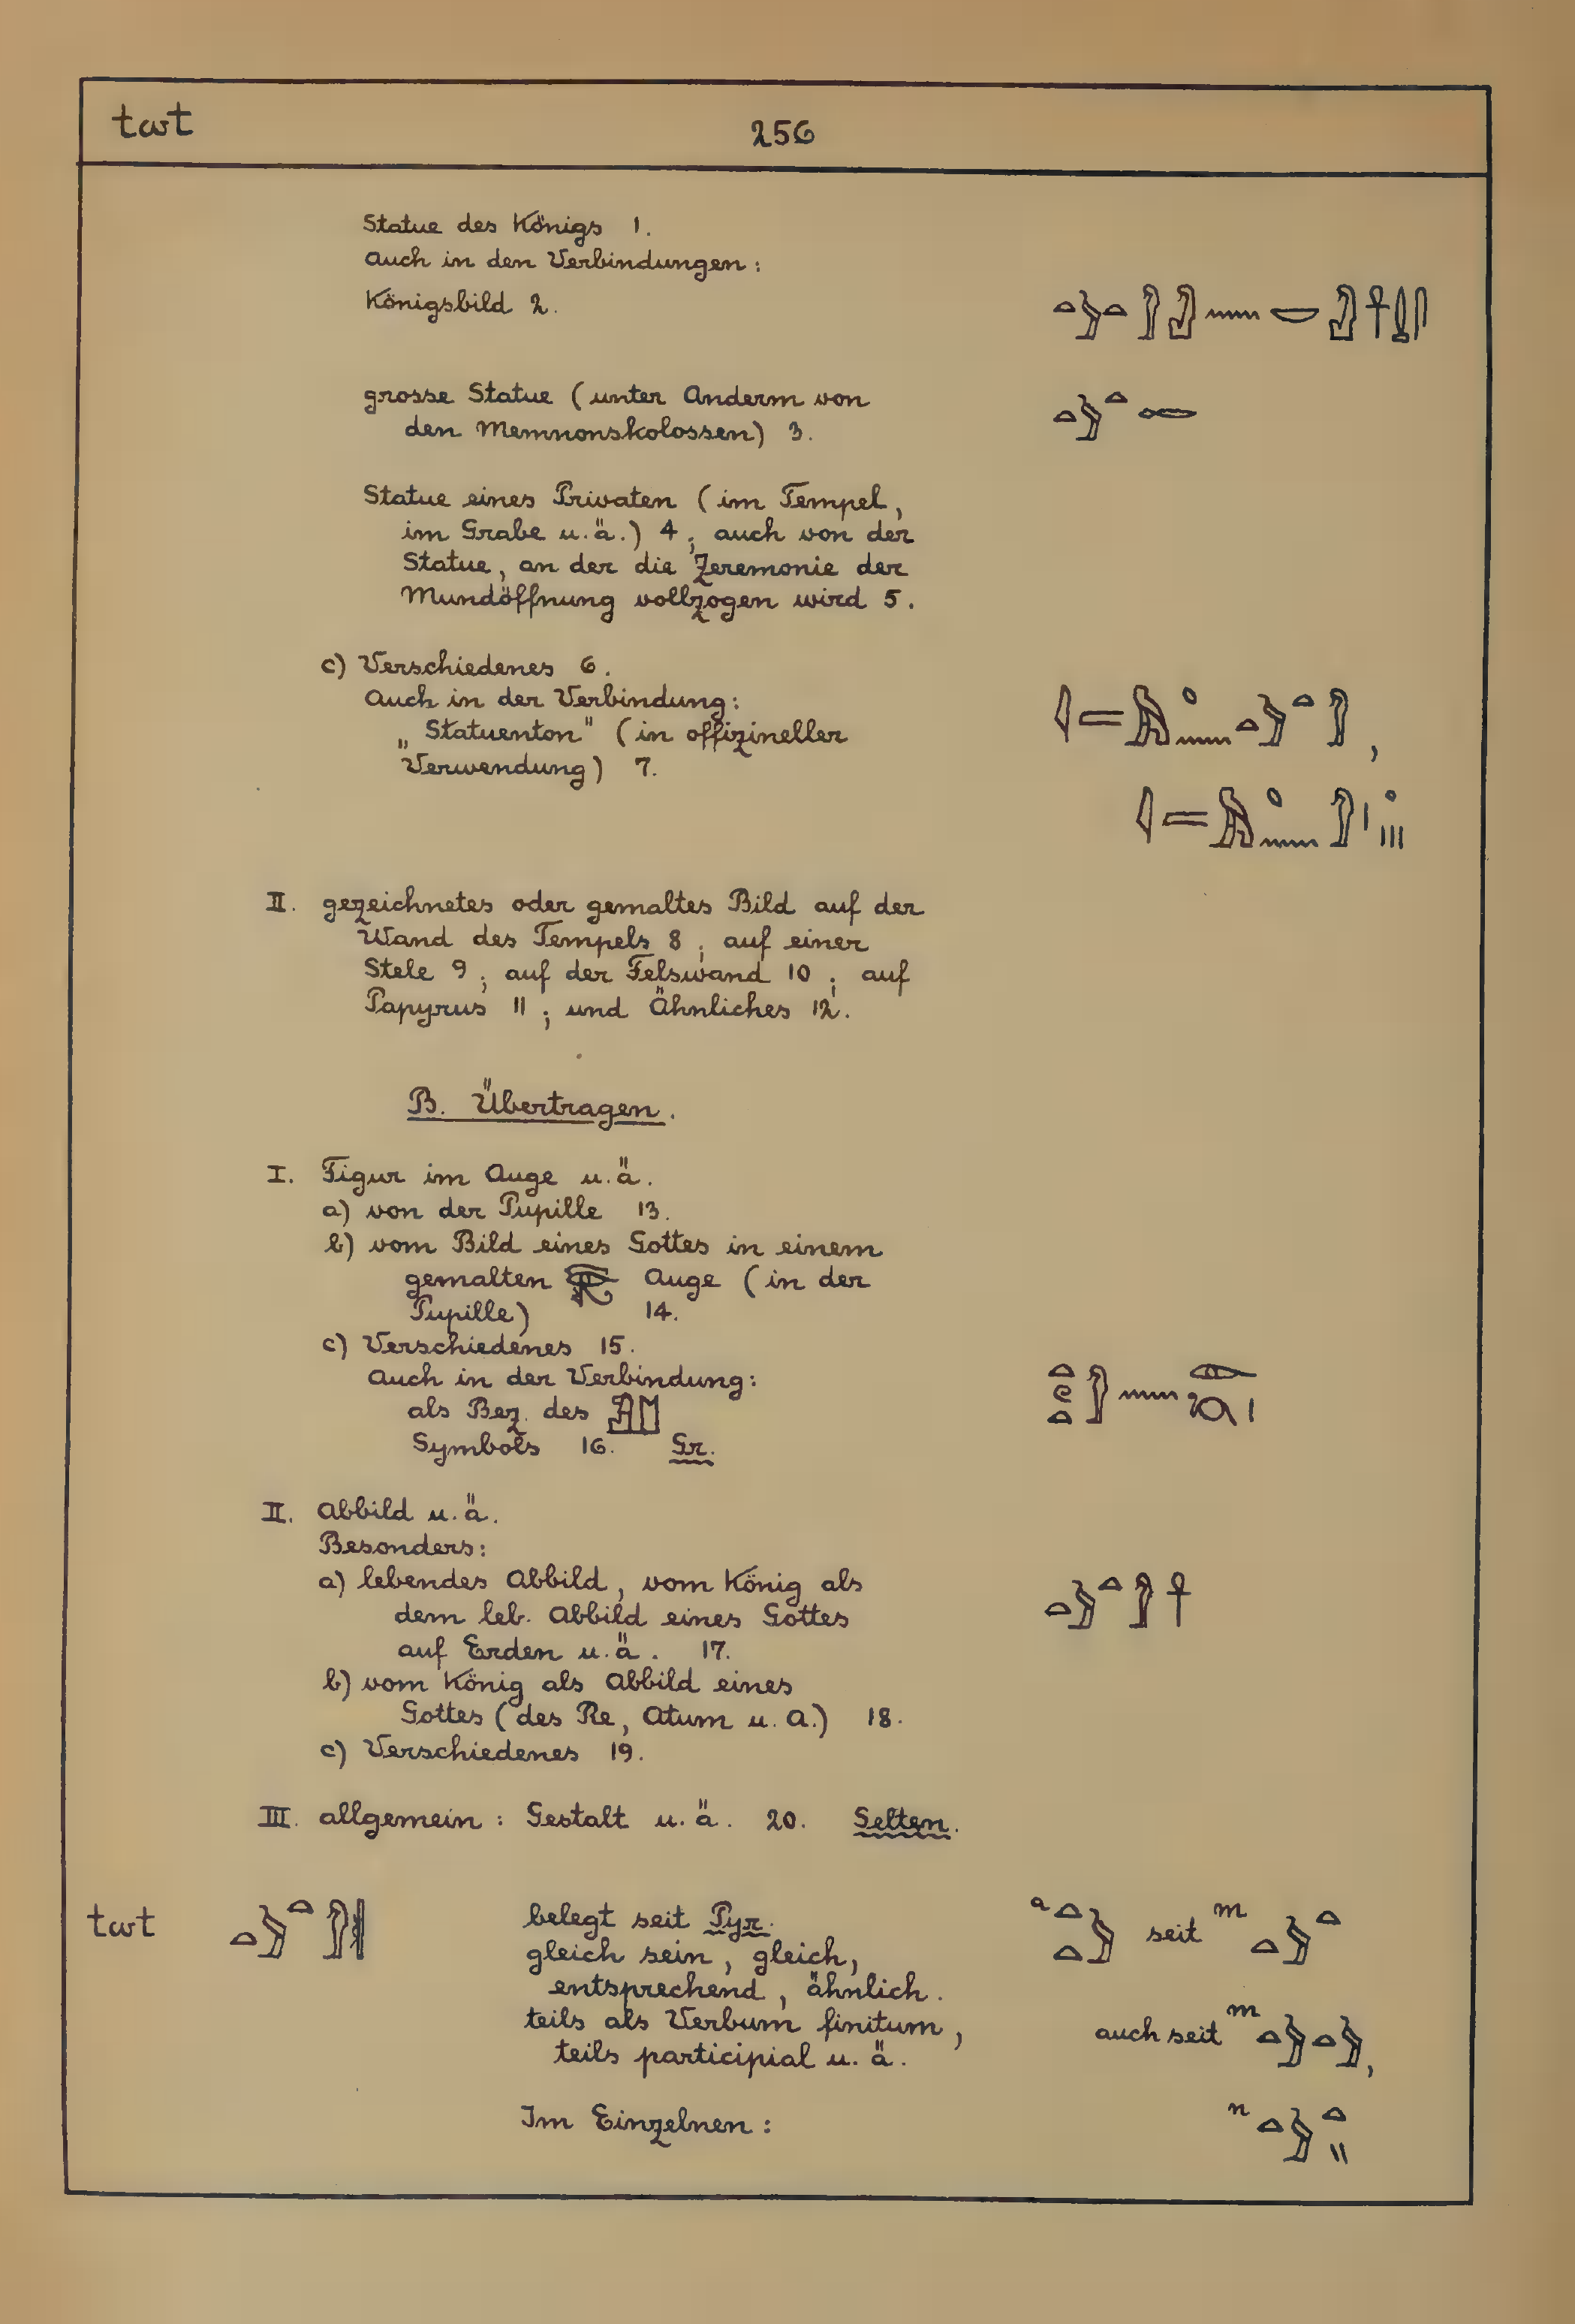 twt
256
Statue des Königs 1.
Auch in den Verbindungen:
Königsbild 2.
grosse Statue (unter Anderm von
den Memnonskolossen) 3.
Statue eines Privaten (im Tempel,
im Grabe u.ä.) 4; auch von der
Statue, an der die Zeremonie der
Mundöffnung vollzogen wird 5.
c) Verschiedenes 6.
Auch in der Verbindung:
„Statuenton" (in offizineller
Verwendung) 7.
II. gezeichnetes oder gemaltes Bild auf der
Wand des Tempels 8; auf einer
Stele 9; auf der Felswand 10; auf
Papyrus 11; und Ähnliches 12.
B. Übertragen.
I. Figur im Auge u.ä.
a) von der Pupille 13.
b) vom Bild eines Gottes in einem
gemalten 𓂀 Auge (in der
Pupille) 14.
c) Verschiedenes 15.
Auch in der Verbindung:
als Bez. des
Symbols 16. Gr.
II. Abbild u.ä.
Besonders:
a) lebendes Abbild, vom König als
dem leb. Abbild eines Gottes
auf Erden u.ä. 17.
b) vom König als Abbild eines
Gottes (des Re, Atum u. A.) 18.
c) Verschiedenes 19.
III. allgemein: Gestalt u.ä. 20. Selten.
twt belegt seit Pyr. a seit m
gleich sein, gleich,
entsprechend, ähnlich.
teils als Verbum finitum, auch seit m ,
teils participial u. ä.
Im Einzelnen: n